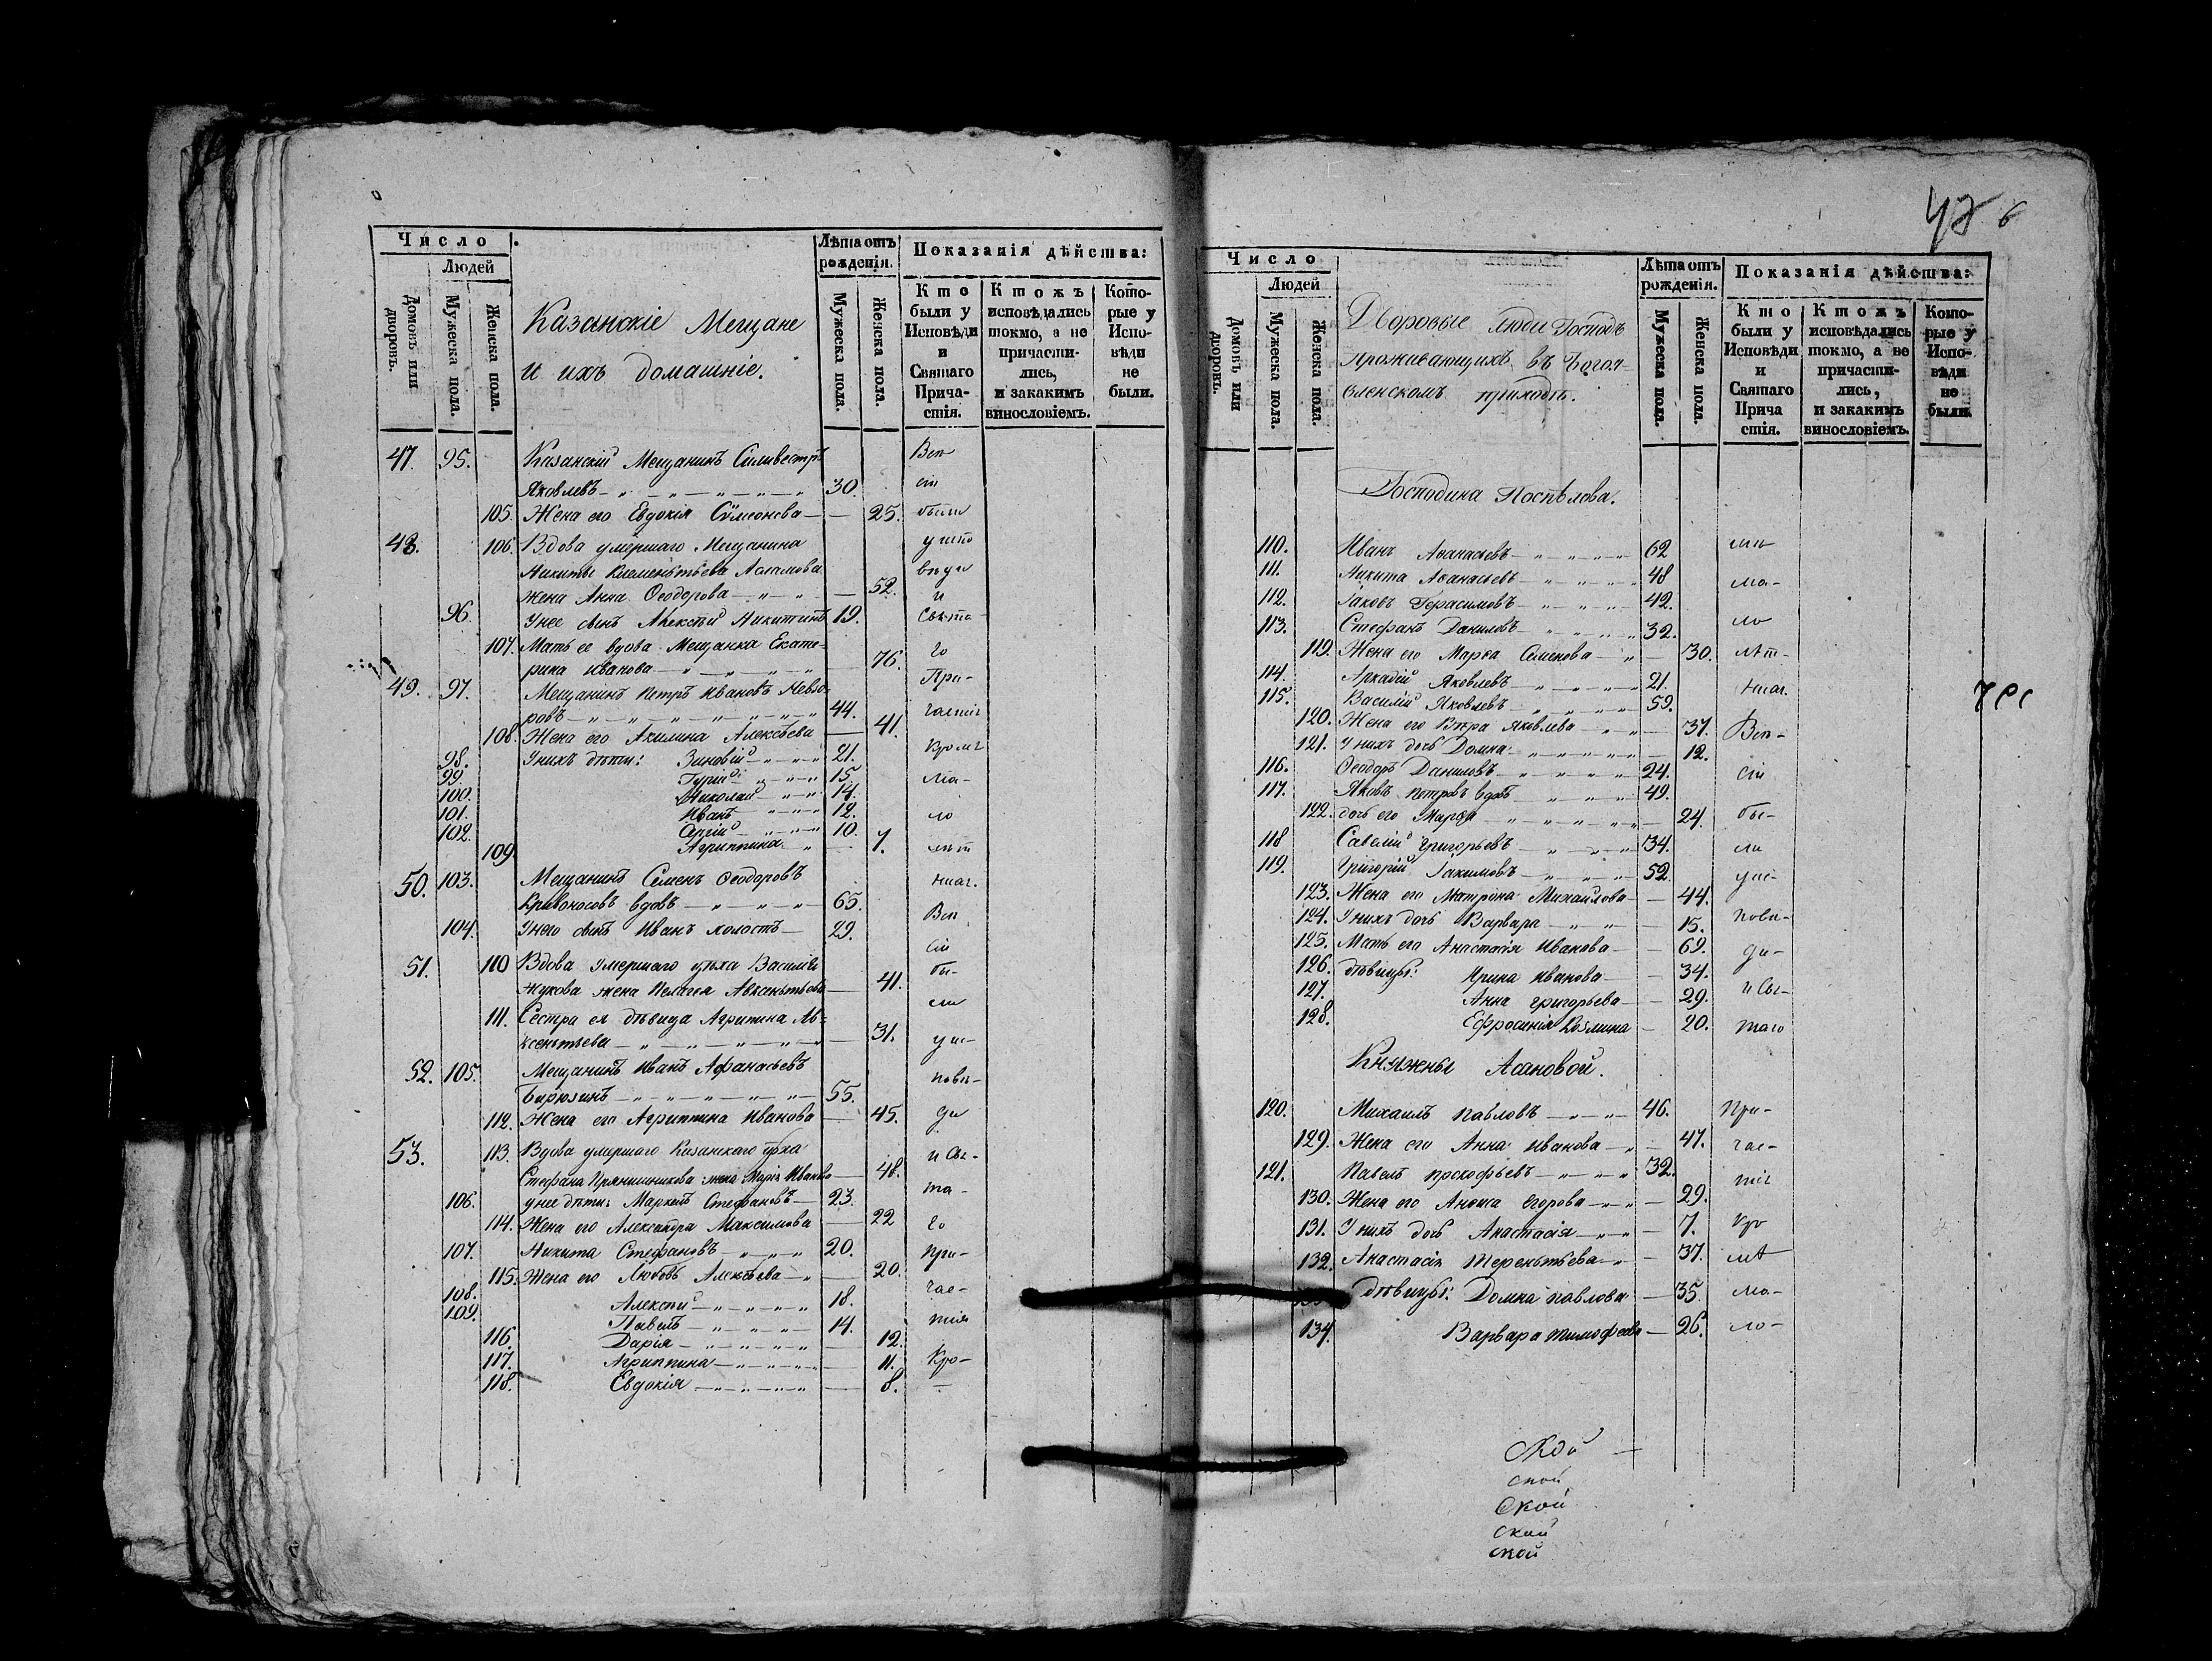 Число
Людей
Домовъ или дворовъ.
Мужеска пола.
Женска пола.
Казанскіе Мещане
и ихъ домашніе.
Лѣта отъ рожденія.
Мужеска пола.
Женска пола.
Показанія дѣйства:
Кто были у Исповѣди и Святаго Причастія.
Ктожъ исповѣдались токмо, а не причастились, и закакимъ винословіемъ.
Которые у Исповѣди не были.
47. 95. Казанскій Мещанинъ Сильвестръ Всѣ
Яковлевъ 30. сіи
105. Жена его Евдокія Сѵмеонова 25. были
48. 106. Вдова умершаго Мещанина у испо
Никиты Клеменьтьева
жена Анна Ѳеодорова 52. и
96. У нее сынъ Алексѣй Никитинъ 19. Свята
107. Мать ее вдова Мещанка Екате- го
рина Иванова 76. При-
49. 97. Мещанинъ Петръ Ивановъ Невзо-
ровъ 44. частія
108. Жена его Акилина Алексѣева 41.
98. У нихъ дѣти: Зиновій 21. Кромѣ
99. Гурій 15. ма-
100. Николай 14.
101. Иванъ 12. ло
102. Сергій 10.
109 Агриппина 7. лѣт
50. 103. Мещанинъ Семенъ Ѳеодоровъ ныхъ.
Кривоносовъ вдовъ 65.
104. У него сынъ Иванъ холостъ 29. Всѣ
сіи
51. 110 Вдова умершаго цѣха Василія бы-
Жукова жена Пелагея Авксеньтьева 41. ли
111. Сестра ея дѣвица Агрипина Ав-
ксеньтьева 31. у ис-
52. 105. Мещанинъ Иванъ Афанасьевъ повѣ-
Бирюзинъ 55.
112. Жена его Агриппина Иванова 45. ди
53. 113. Вдова умершаго Казанскаго цѣха и Свя-
Стефана Прянишникова жена Марія Иванова 48.
106. у нее дѣти: Маркелъ Стефановъ 23. та-
114. Жена его Александра Максимова 22 го
107. Никита Стефановъ 20. при-
115. Жена его Любовь Алексѣева 20.
108. Алексѣй 18. час-
109. Павелъ 14. тія
116. Дарія 12.
117. Агриппина 11. Кро-
118. Евдокія 8.
47 6
Число
Людей
Домовъ или дворовъ.
Мужеска пола.
Женска пола.
Дворовые люди Господъ
проживающихъ въ Богоя-
вленскомъ приходѣ.
Лѣта отъ рожденія.
Мужеска пола.
Женска пола.
Показанія дѣйства:
Кто были у Исповѣди и Святаго Прича стія.
Ктожъ исповѣдались токмо, а не причастились, и закакимъ винословіемъ.
Которые у Исповѣди не были.
Господина Поспѣлова.
110. Иванъ Аѳанасьевъ 62 мѣ
111. Никита Аѳанасьевъ 48 ма-
112. Іаковъ Герасимовъ 42.
113. Стефанъ Даниловъ 32. ло
119. Жена его Марѳа Семенова 30. лѣт-
114. Аркадій Яковлевъ 21. ныхъ.
115. Василій Яковлевъ 59.
120. Жена его Вѣра Яковлева 37. Всѣ-
121. У нихъ дочь Домна 12.
116. Ѳеодоръ Даниловъ 24. сіи
117. Яковъ Петровъ вдовъ 49.
122. дочь его Марфа 24. бы-
118 Савелій Григорьевъ 34. ли
119. Григорій Іакимовъ 52. у ис-
123. Жена его Матрона Михайлова 44.
124. У нихъ дочь Варвара 15. повѣ-
125. Мать его Анастасія Иванова 69. ди-
126. дѣвицы: Ирина Иванова 34.
127. Анна Григорьева 29. и Свя-
128. Ефросинія Козмина 20. таго
Княжны Асановой.
120. Михаилъ Павловъ 46. При-
129. Жена его Анна Иванова 47. час-
121. Павелъ Прокофьевъ 32. тія
130. Жена его Анюта Егорова 29.
131. У нихъ дочь Анастасія 7. Кро
132. Анастасія Тереньтьева 37. мѣ
дѣвицы: Домна Павлова 35. ма-
134. Варвара Тимофеева 26. ло-
ской
Ской
ской
ской